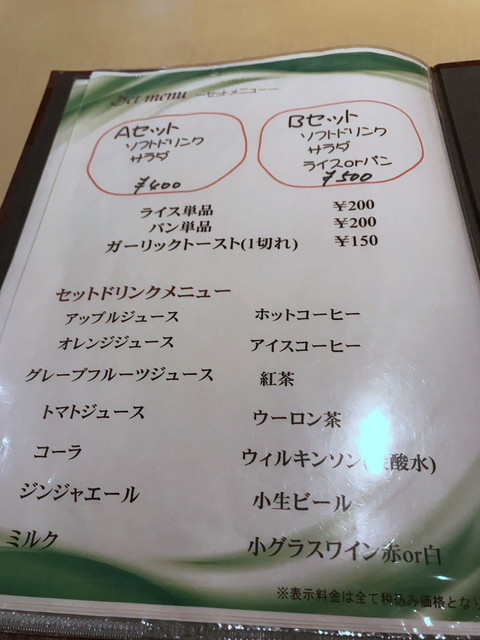 Set menu ーセットメニューー
Aセット
ソフトドリンク
サラダ
¥400
Bセット
ソフトドリンク
サラダ
ライスorパン
¥500
ライス単品 ¥200
パン単品 ¥200
ガーリックトースト(1切れ) ¥150
セットドリンクメニュー
アップルジュース ホットコーヒー
オレンジジュース アイスコーヒー
グレープフルーツジュース 紅茶
トマトジュース ウーロン茶
コーラ ウィルキンソン(炭酸水)
ジンジャエール 小生ビール
ミルク 小グラスワイン赤or白
※表示料金は全て税込み価格となり